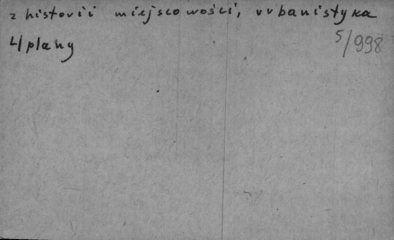 z historii miejscowości, urbanistyka
4 plany
5/998